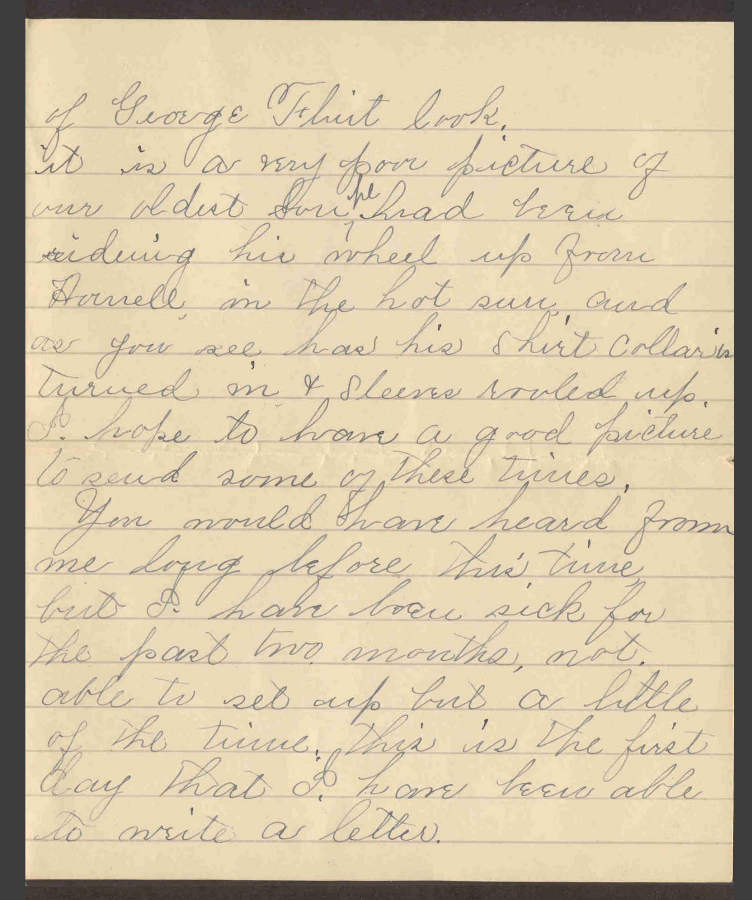 of George Flint look.
it is a very poor picture of
our oldest Son, he had been
rideing his wheel up from
Hornell, in the hot sun, and
as you see has his shirt collar is
turned in & sleeves rooled up.
I. hope to have a good picture
to send some of these times,
You would have heard from
me long before this time,
but I. have been sick for
the past two months, not.
able to set up but a little
of the time. this is the first
day that I. have been able
to write a letter.